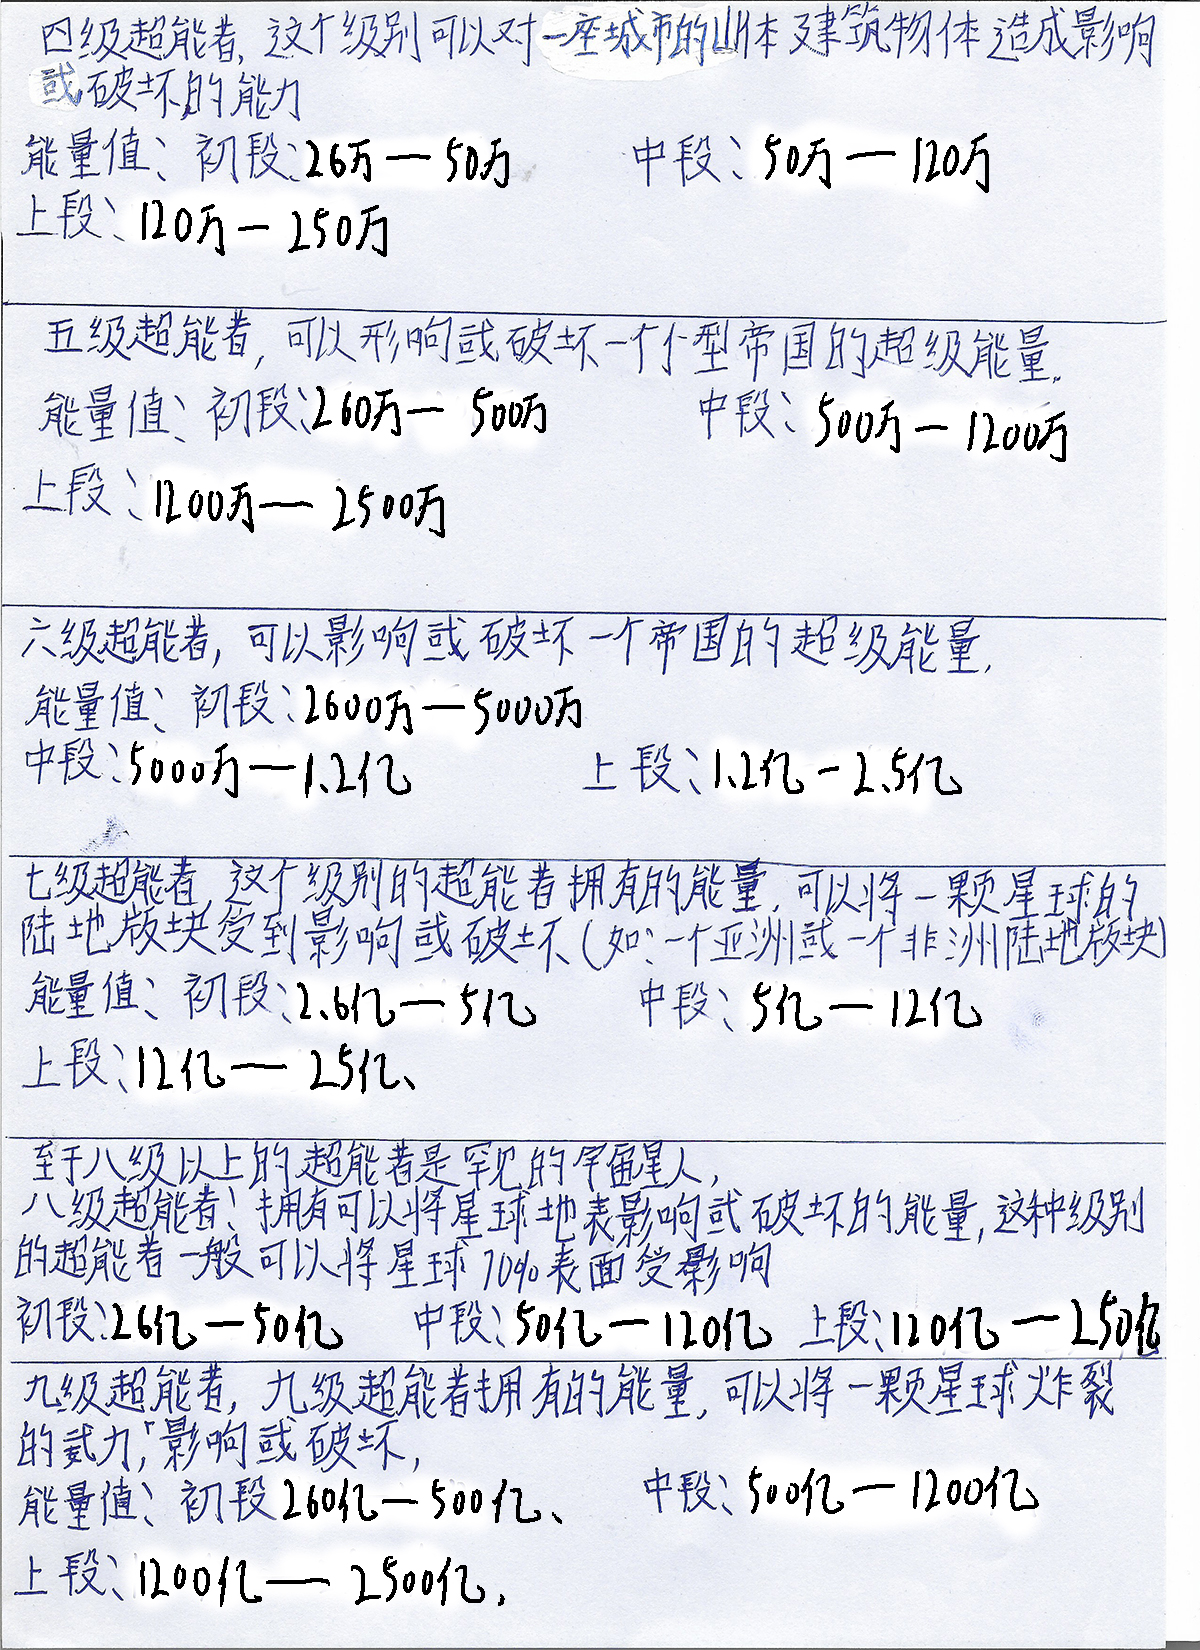 四级超能者，这个级别可以对一座城市的山体建筑物体造成影响
或破坏的能力
能量值：初段：26万—50万 中段：50万—120万
上段：120万—250万
五级超能者，可以形响或破坏一个小型帝国的超级能量.
能量值：初段：260万—500万 中段：500万—1200万
上段：1200万—2500万
六级超能者，可以影响或破坏一个帝国的超级能量.
能量值：初段：2600万—5000万
中段：5000万—1.2亿 上段：1.2亿-2.5亿
七级超能者，这个级别的超能者拥有的能量，可以将一颗星球的
陆地版块受到影响或破坏（如：一个亚洲或一个非洲陆地版块）
能量值：初段：2.6亿—5亿 中段：5亿—12亿
上段：12亿—25亿、
至于八级以上的超能者是罕见的宇宙星人，
八级超能者：拥有可以将星球地表影响或破坏的能量，这种级别
的超能者一般可以将星球70%表面受影响
初段：26亿—50亿 中段：50亿—120亿 上段：120亿—250亿
九级超能者，九级超能者拥有的能量，可以将一颗星球炸裂
的武力，影响或破坏，
能量值：初段260亿—500亿、 中段：500亿—1200亿
上段：1200亿—2500亿.